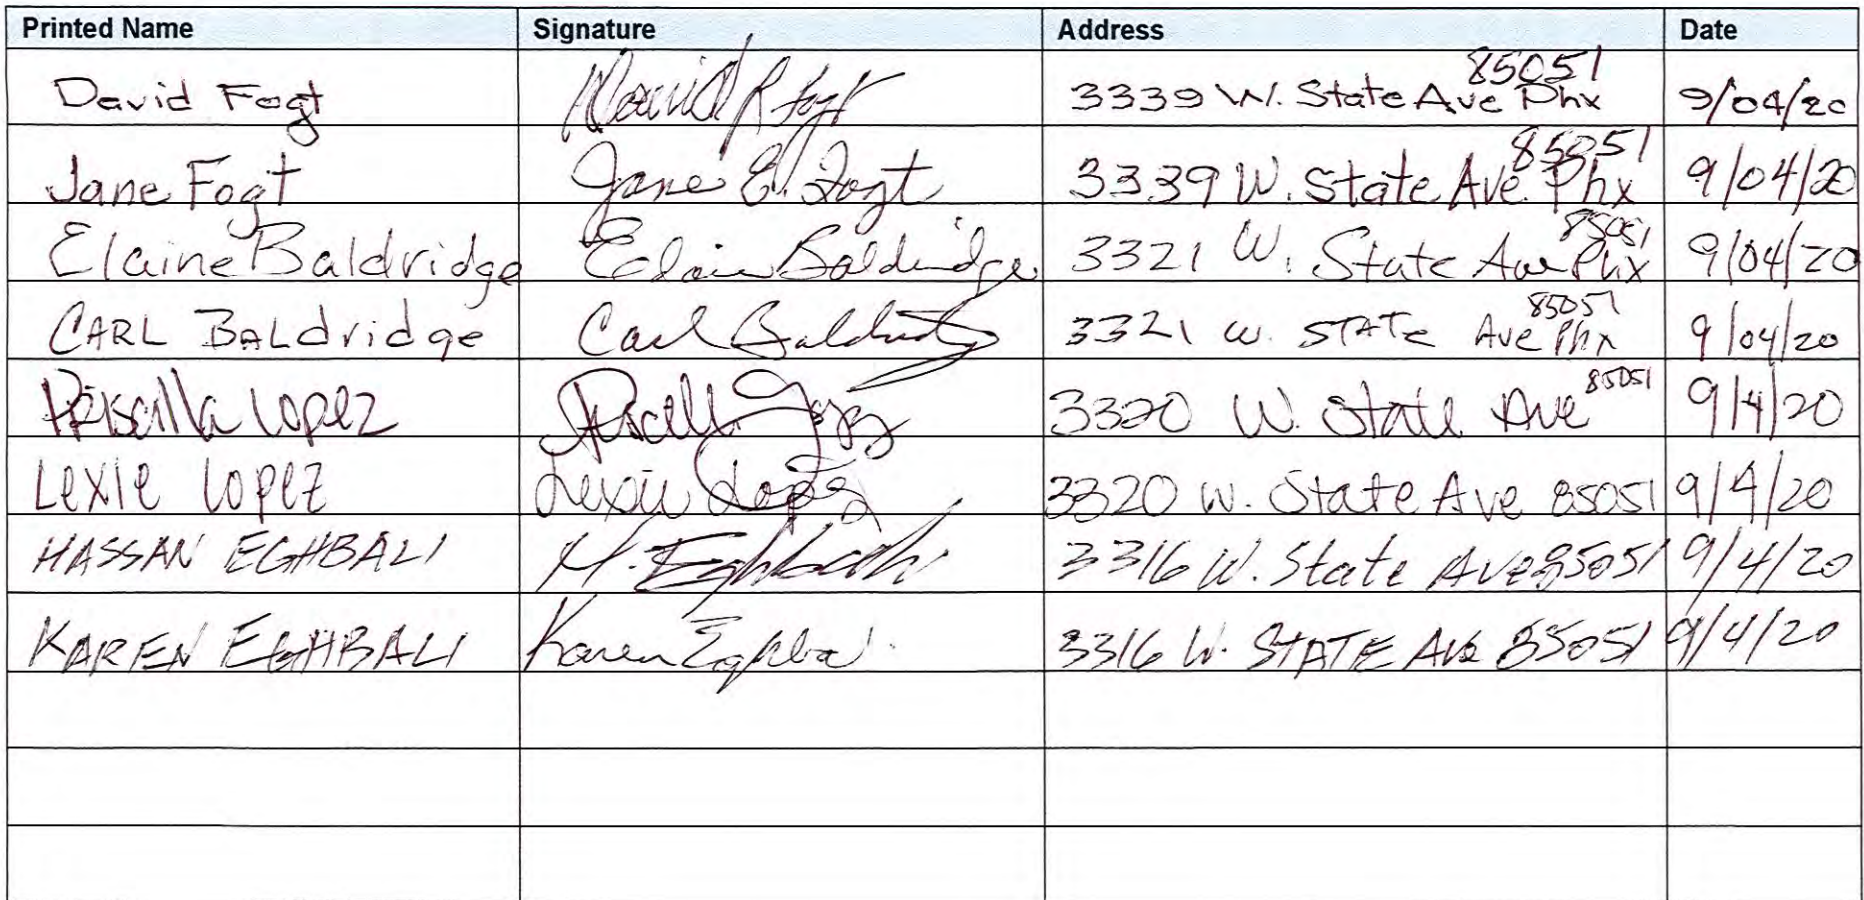 Printed Name Signature Address Date
David Fogt David R Fogt 3339 W. State Ave Phx 85051 9/04/20
Jane Fogt Jane E. Fogt 3339 W. State Ave. Phx 85051 9/04/20
Elaine Baldridge Elaine Baldridge 3321 W. State Ave Phx 85051 9/04/20
CARL BALdridge Carl Baldridge 3321 W. STATE Ave Phx 85051 9/04/20
Priscilla Lopez Priscilla Lopez 3320 W. State Ave 85051 9/4/20
Lexie Lopez Lexie Lopez 3320 W. State Ave 85051 9/4/20
HASSAN EGHBALI H. Eghbali 3316 W. State Ave 85051 9/4/20
KAREN EGHBALI Karen Eghbali 3316 W. STATE Ave 85051 9/4/20